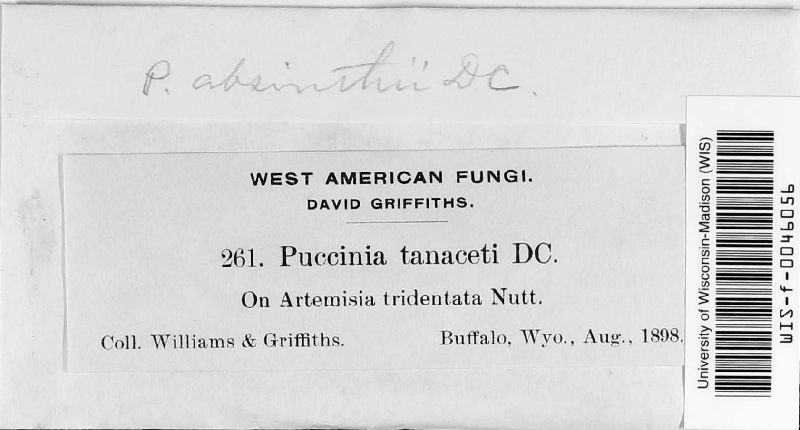 P. absinthii DC.
WEST AMERICAN FUNGI.
DAVID GRIFFITHS.
261. Puccinia tanaceti DC.
On Artemisia tridentata Nutt.
Coll. Williams & Griffiths. Buffalo, Wyo., Aug., 1898.
University of Wisconsin-Madison (WIS)
WIS-f-0046056